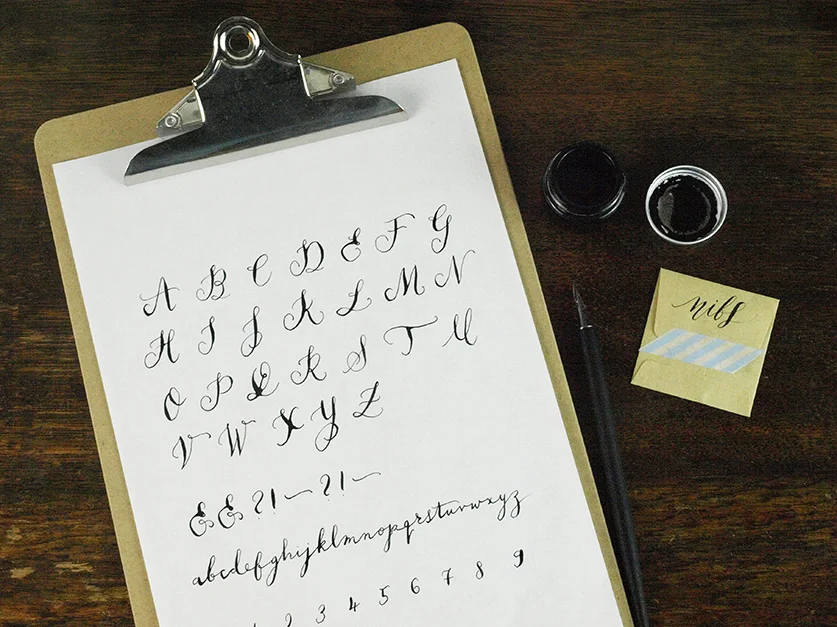 A B C D E F G
H I J K L M N
O P Q R S T U
V W X Y Z
& & ? ! ~ ? ! ~
abcdefghijklmnopqrstuvwxyz
1 2 3 4 5 6 7 8 9
nibs